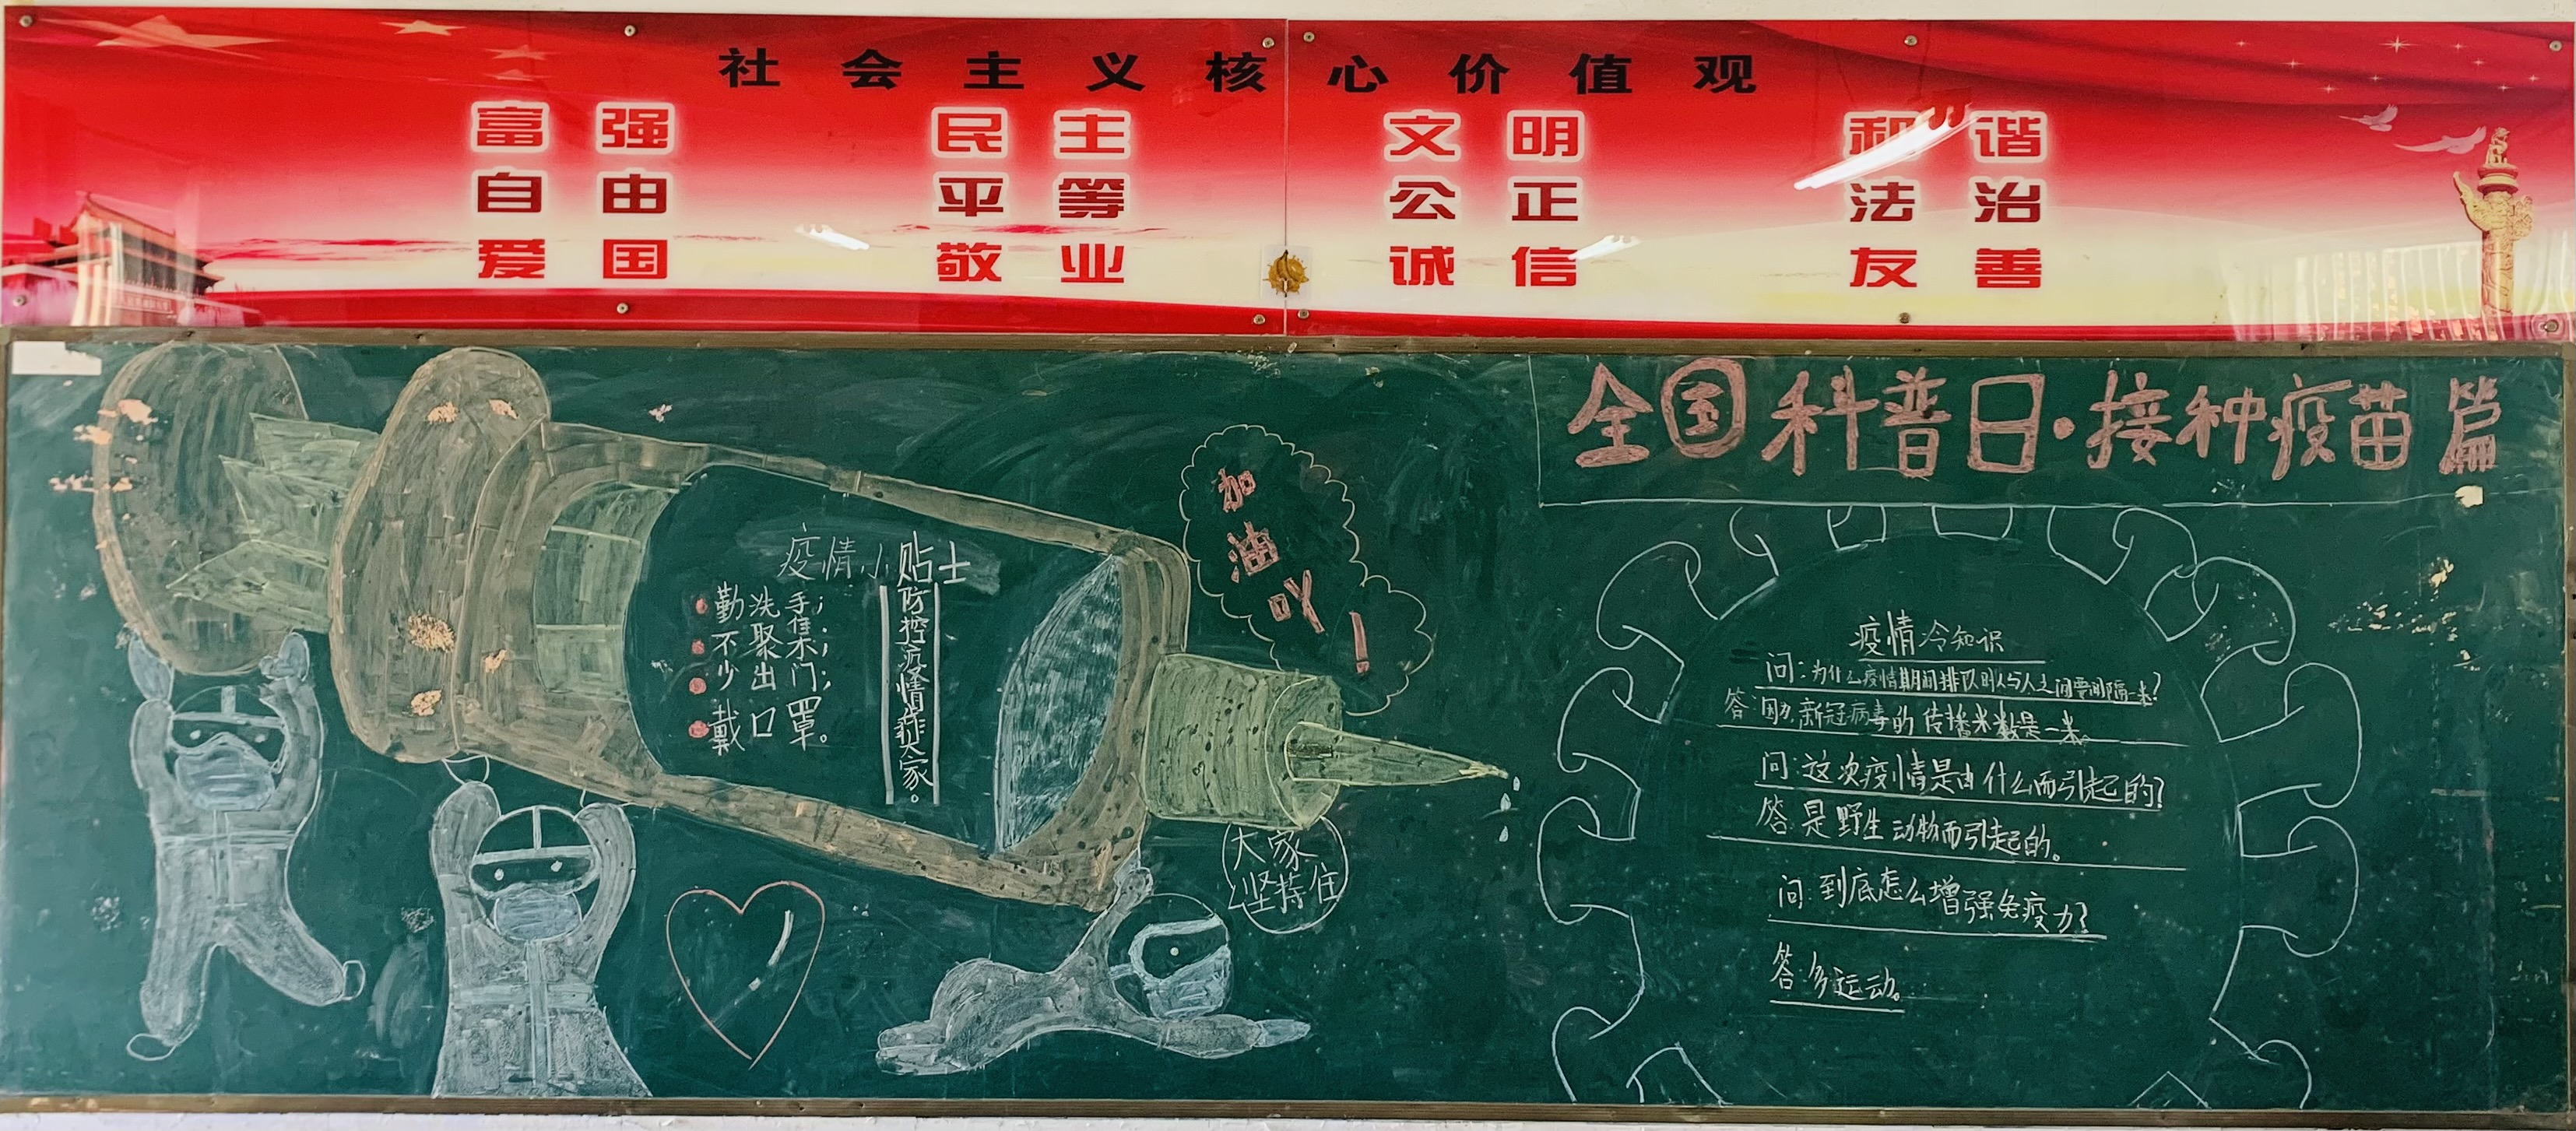 社会主义核心价值观
富强 民主 文明 和谐
自由 平等 公正 法治
爱国 敬业 诚信 友善
全国科普日·接种疫苗篇
加油吖！
疫情小贴士
勤洗手；
不聚集；
少出门；
戴口罩。
防控疫情靠大家。
大家
坚持住
疫情冷知识
问：为什么疫情期间排队时人与人之间要间隔一米？
答：因为新冠病毒的传播米数是一米。
问：这次疫情是由什么而引起的？
答：是野生动物而引起的。
问：到底怎么增强免疫力？
答：多运动。